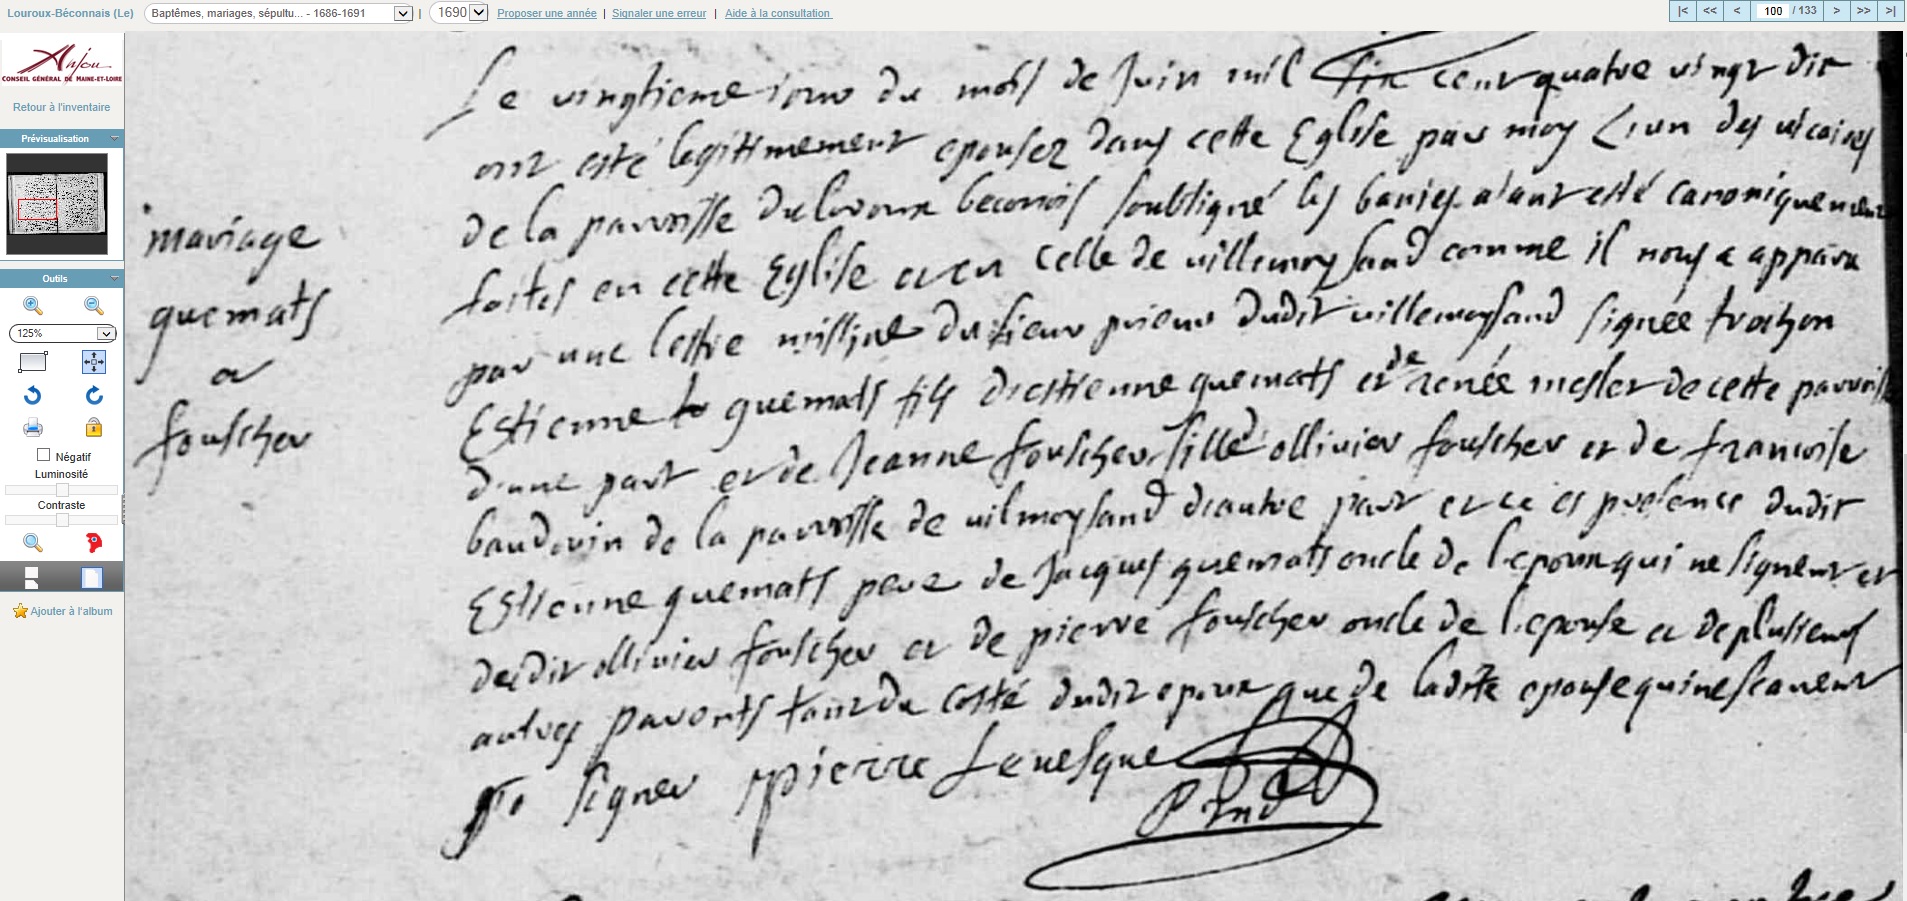 Louroux-Béconnais (Le) Baptêmes, mariages, sépultu... - 1686-1691 | 1690 Proposer une année | Signaler une erreur | Aide à la consultation |< << < 100 / 133 > >> >|
Anjou
CONSEIL GÉNÉRAL DE MAINE-ET-LOIRE
Retour à l'inventaire
Prévisualisation
Outils
125%
Négatif
Luminosité
Contraste
Ajouter à l'album
mariage
quemats
a
foulcher
Le vingtieme iour du mois de Juin mil six cent quatre vingt dix
ont esté legitimement epousez dans cette Eglise par moy l'un des vicaires
de la parroisse du Loroux beconnois soubsigné les banies aiant esté canoniquement
faites en cette Eglise et en celle de villemoysand comme il nous a apparu
par une lettre missive du sieur prieur dudit villemoysand signée trochon
Estienne quemats fils d'estienne quemats et de renée mesler de cette parroisse
d'une part et de Jeanne foulcher fille d ollivier foulcher et de francoise
baudouin de la parroisse de vilmoysand d'autre part et ce es presence dudit
Estienne quemats pere de Jacques quemats oncle de l'epoux qui ne signent et
dudit ollivier foulcher et de pierre foulcher oncle de l'epouse et de plusieurs
autres parents tant du costé dudit epoux que de ladite epouse qui ne scavent
signer pierre Levesque